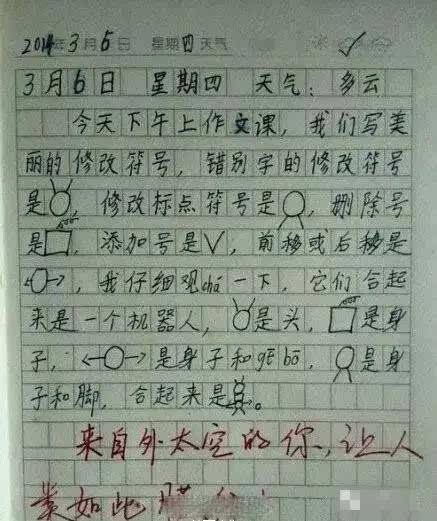 2014年3月6日 星期四天气
3月6日 星期四 天气：多云
今天下午上作文课，我们写美
丽的修改符号，错别字的修改符号
是，修改标点符号是，删除号
是，添加号是V，前移或后移是
，我仔细观chá一下，它们合起
来是一个机器人，是头，是身
子，是身子和gē bō，是身
子和脚，合起来是。
来自外太空的你，让人
类如此